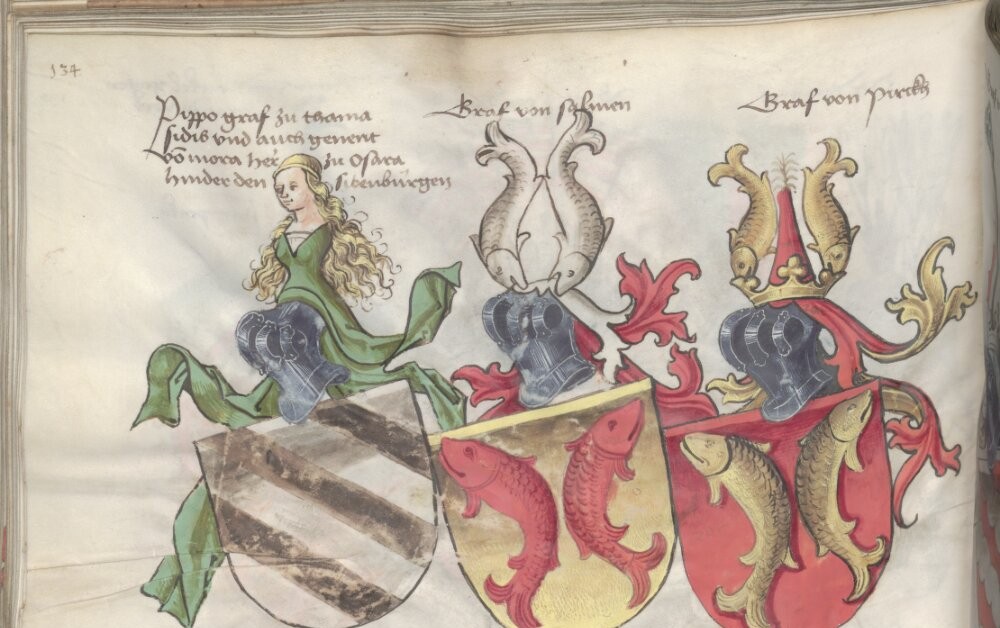 134
Pippo graf zu thama
sidis vnd auch genent
vo mora her zu Osara
hinder den sibenburgen
Graf von salmen
Graf von Pirckh